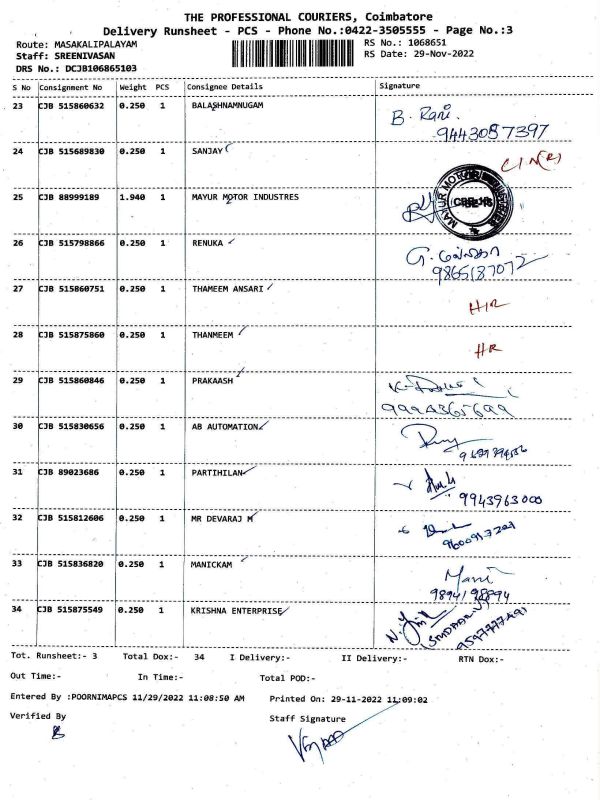 THE PROFESSIONAL COURIERS, Coimbatore
Delivery Runsheet - PCS - Phone No.:0422-3505555 - Page No.:3
Route: MASAKALIPALAYAM RS No.: 1068651
Staff: SREENIVASAN RS Date: 29-Nov-2022
DRS No.: DCJB106865103
S No Consignment No Weight PCS Consignee Details Signature
23 CJB 515860632 0.250 1 BALASHNAMNUGAM B. Rani
9443087397
24 CJB 515689830 0.250 1 SANJAY C/N(R)
25 CJB 88999189 1.940 1 MAYUR MOTOR INDUSTRES MAYUR MOTOR INDUSTRIES
26 CJB 515798866 0.250 1 RENUKA
9865187072
27 CJB 515860751 0.250 1 THAMEEM ANSARI H/R
28 CJB 515875860 0.250 1 THANMEEM HR
29 CJB 515860846 0.250 1 PRAKAASH
9994365699
30 CJB 515830656 0.250 1 AB AUTOMATION
31 CJB 89023686 0.250 1 PARTIHILAN
9943963000
32 CJB 515812606 0.250 1 MR DEVARAJ M
33 CJB 515836820 0.250 1 MANICKAM Mani
9894198894
34 CJB 515875549 0.250 1 KRISHNA ENTERPRISE
9597777491
Tot. Runsheet:- 3 Total Dox:- 34 I Delivery:- II Delivery:- RTN Dox:-
Out Time:- In Time:- Total POD:-
Entered By :POORNIMAPCS 11/29/2022 11:08:50 AM Printed On: 29-11-2022 11:09:02
Verified By Staff Signature